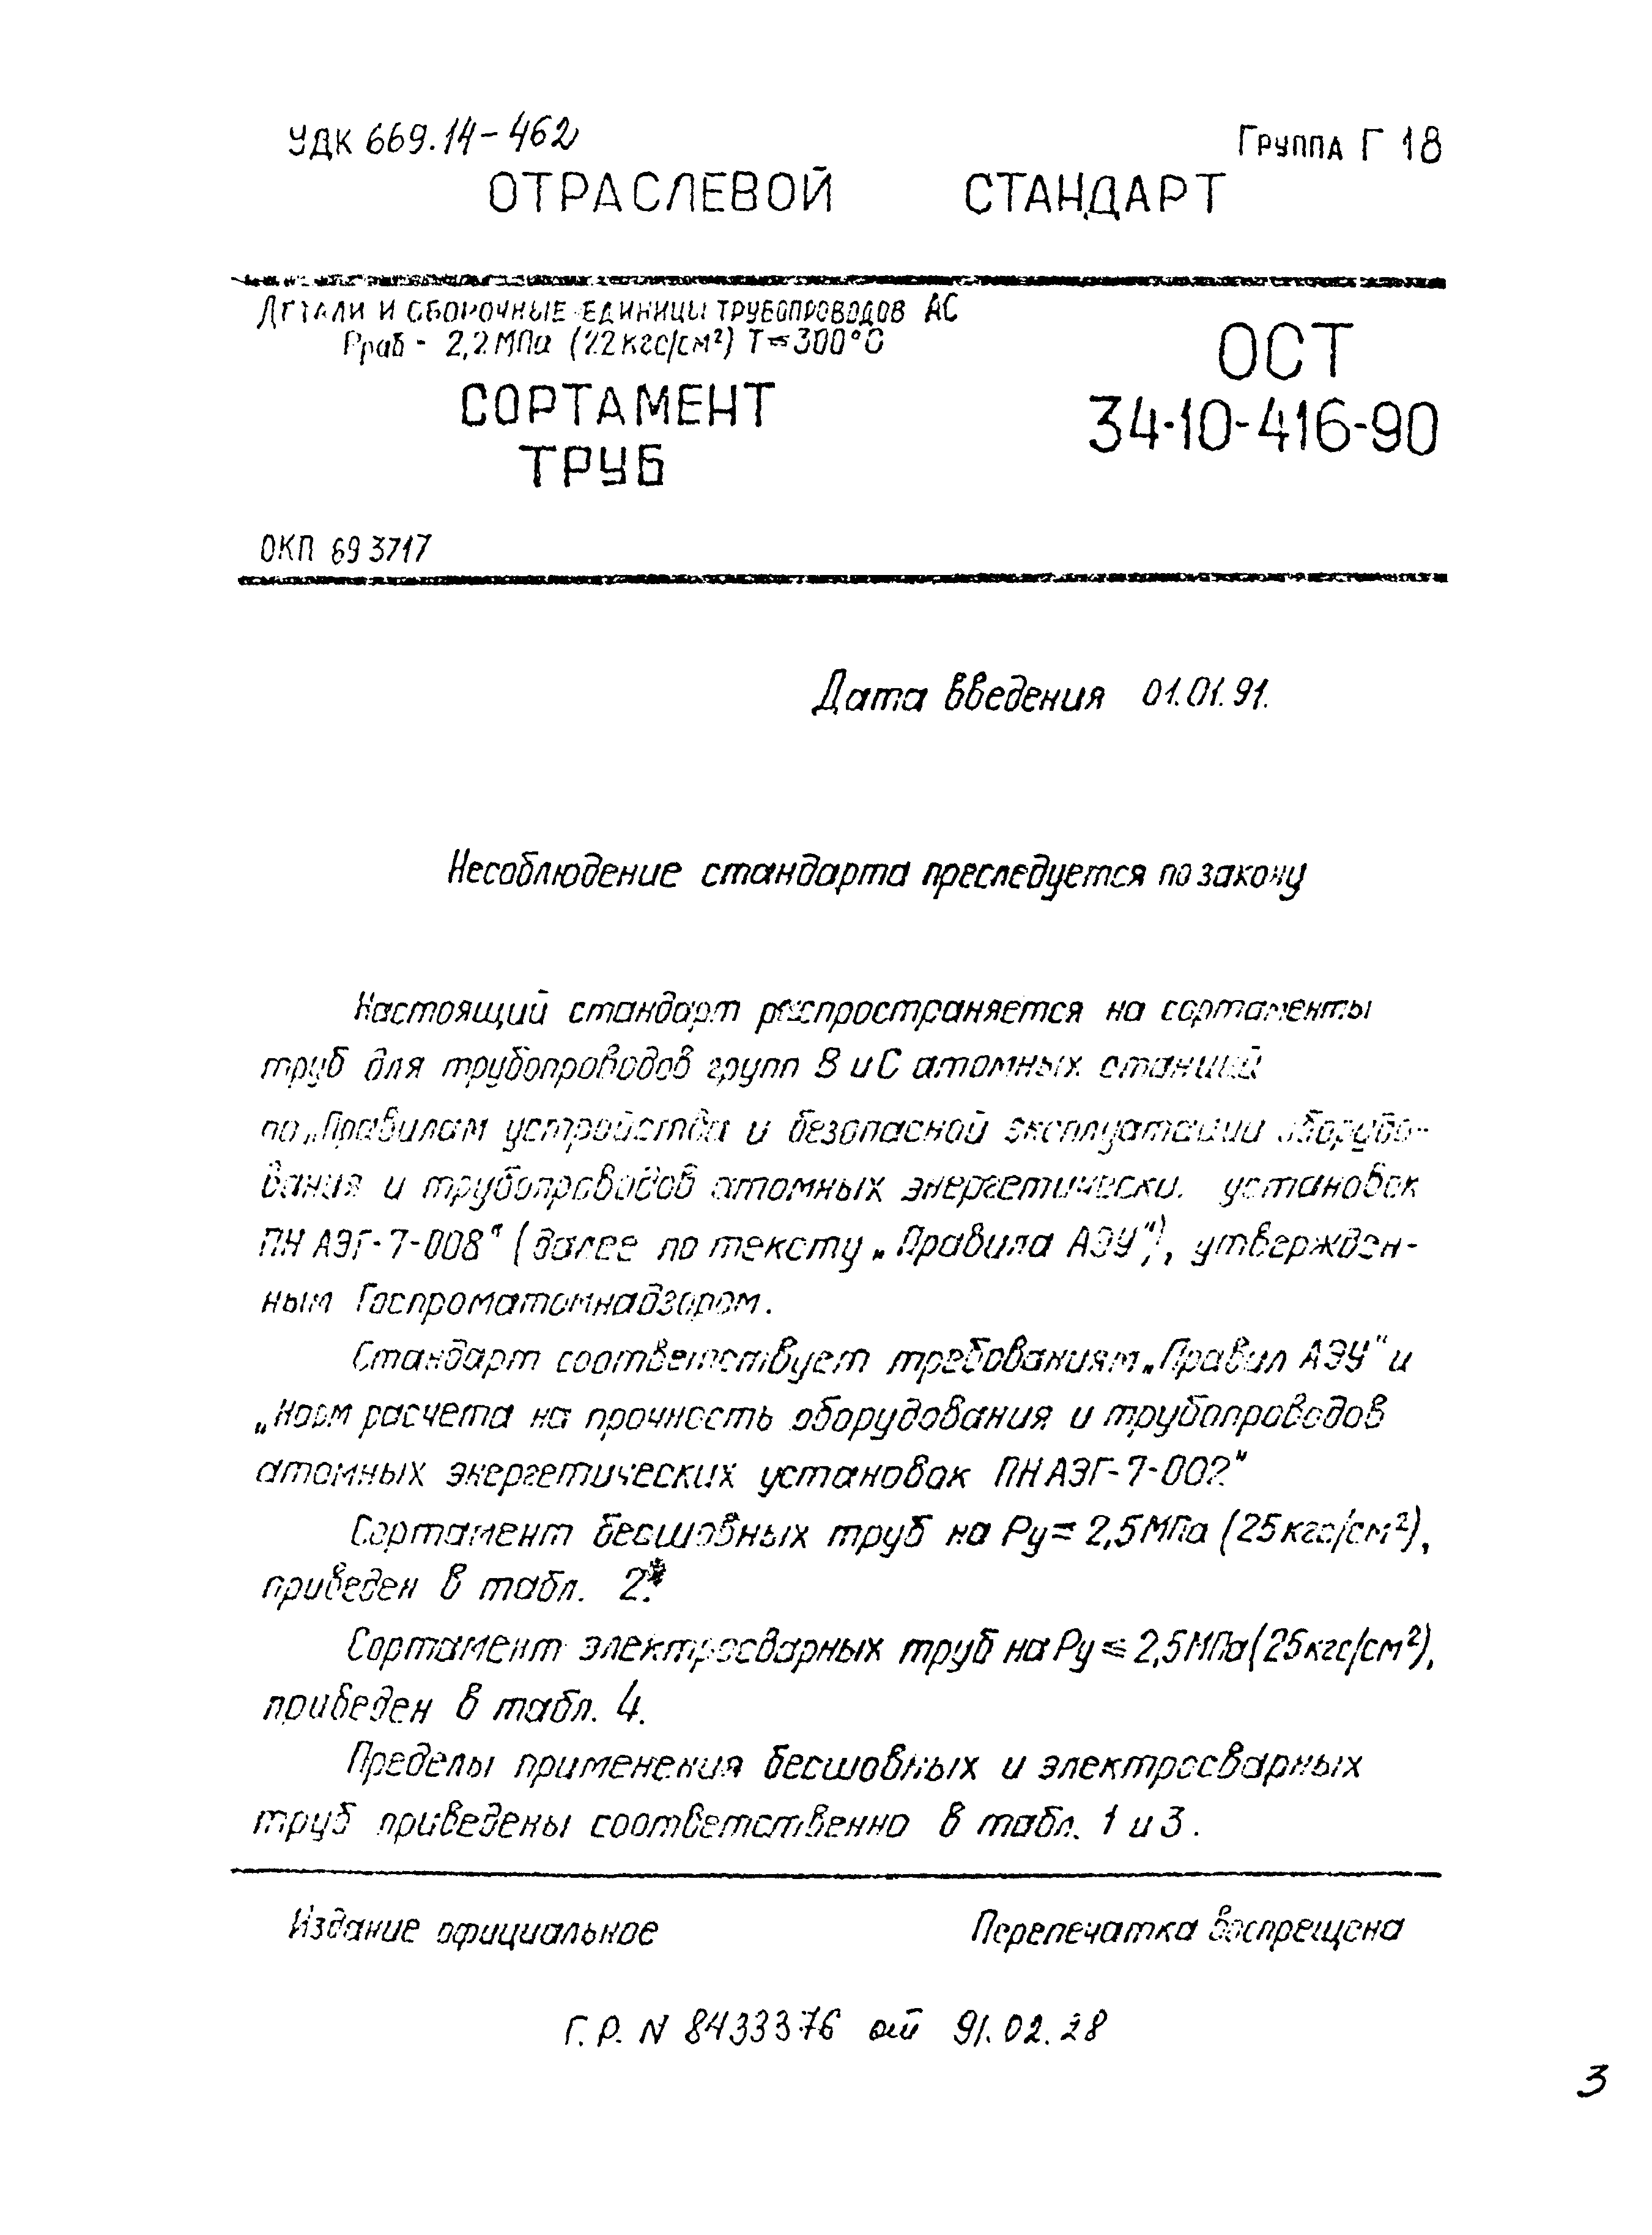 УДК 669.14-462
Группа Г 18
ОТРАСЛЕВОЙ СТАНДАРТ
Детали и сборочные единицы трубопроводов АС
Рраб - 2,2 МПа (22 кгс/см²) Т ≤ 300°С
СОРТАМЕНТ
ТРУБ
ОСТ
34-10-416-90
ОКП 69 3717
Дата введения 01.01.91.
Несоблюдение стандарта преследуется по закону
Настоящий стандарт распространяется на сортаменты
труб для трубопроводов групп В и С атомных станций
по „Правилам устройства и безопасной эксплуатации оборудо-
вания и трубопроводов атомных энергетически. установок
ПН АЭГ-7-008" (далее по тексту „Правила АЭУ"), утвержден-
ным Госпроматомнадзором.
Стандарт соответствует требованиям „Правил АЭУ" и
„Норм расчета на прочность оборудования и трубопроводов
атомных энергетических установок ПН АЭГ-7-002"
Сортамент бесшовных труб на Ру = 2,5 МПа (25 кгс/см²),
приведен в табл. 2.*
Сортамент электросварных труб на Ру ≤ 2,5 МПа (25 кгс/см²),
приведен в табл. 4.
Пределы применения бесшовных и электросварных
труб приведены соответственно в табл. 1 и 3.
Издание официальное
Перепечатка воспрещена
Г.Р. N 8433376 от 91.02.28
3